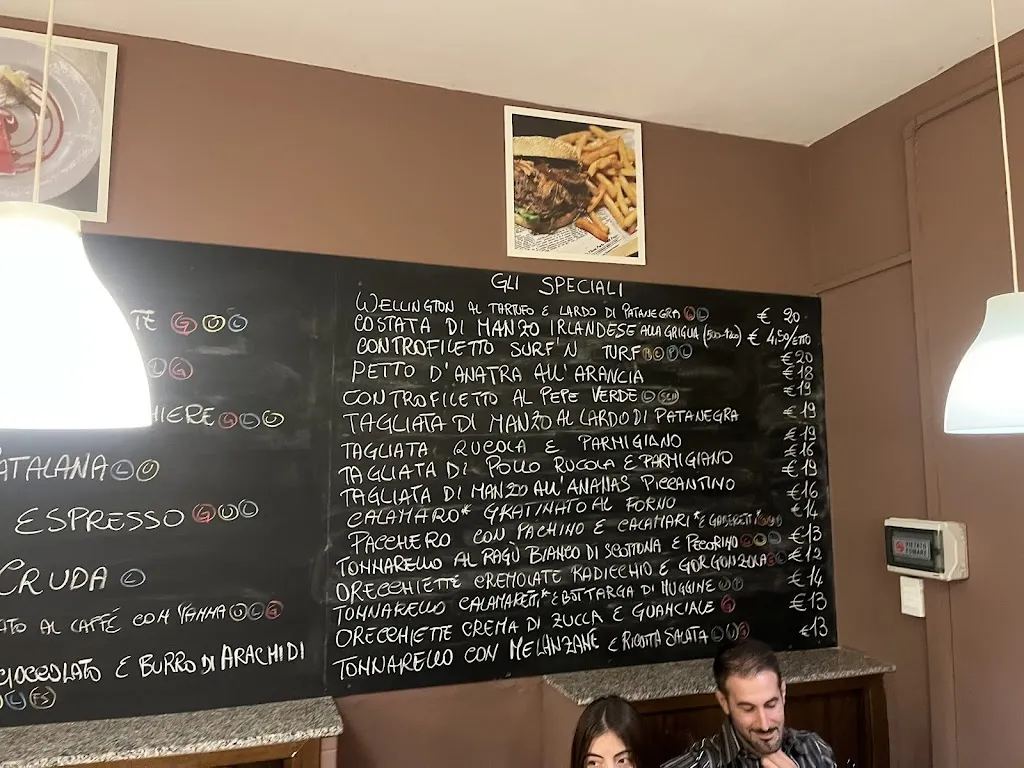 TE G U L
L G
HIERE G L U
ATALANA L U
ESPRESSO G U L
CRUDA L
ATO AL CAFFÉ CON PANNA U L G
CIOCCOLATO E BURRO DI ARACHIDI
L FS
GLI SPECIALI
WELLINGTON AL TARTUFO E LARDO DI PATANEGRA G L € 20
COSTATA DI MANZO IRLANDESE ALLA GRIGLIA € 4,50/ETTO
CONTROFILETTO SURF'N TURF € 20
PETTO D'ANATRA ALL'ARANCIA € 18
CONTROFILETTO AL PEPE VERDE L SEN € 19
TAGLIATA DI MANZO AL LARDO DI PATANEGRA € 19
TAGLIATA RUCOLA E PARMIGIANO € 19
TAGLIATA DI POLLO RUCOLA E PARMIGIANO € 16
TAGLIATA DI MANZO ALL'ANANAS PICCANTINO € 19
CALAMARO* GRATINATO AL FORNO € 16
PACCHERO CON PACHINO E CALAMARI* E € 14
TONNARELLO AL RAGÙ BIANCO DI SCOTTONA E PECORINO € 13
ORECCHIETTE CREMOLATE RADICCHIO E GORGONZOLA € 12
TONNARELLO CALAMARETTI* E BOTTARGA DI MUGGINE € 14
ORECCHIETTE CREMA DI ZUCCA E GUANCIALE G € 13
TONNARELLO CON MELANZANE E RICOTTA SALATA L U G € 13
VIETATO
FUMARE